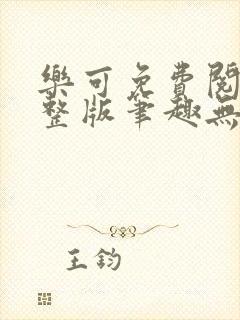 樂可免費閱
整版筆趣無
王鈞